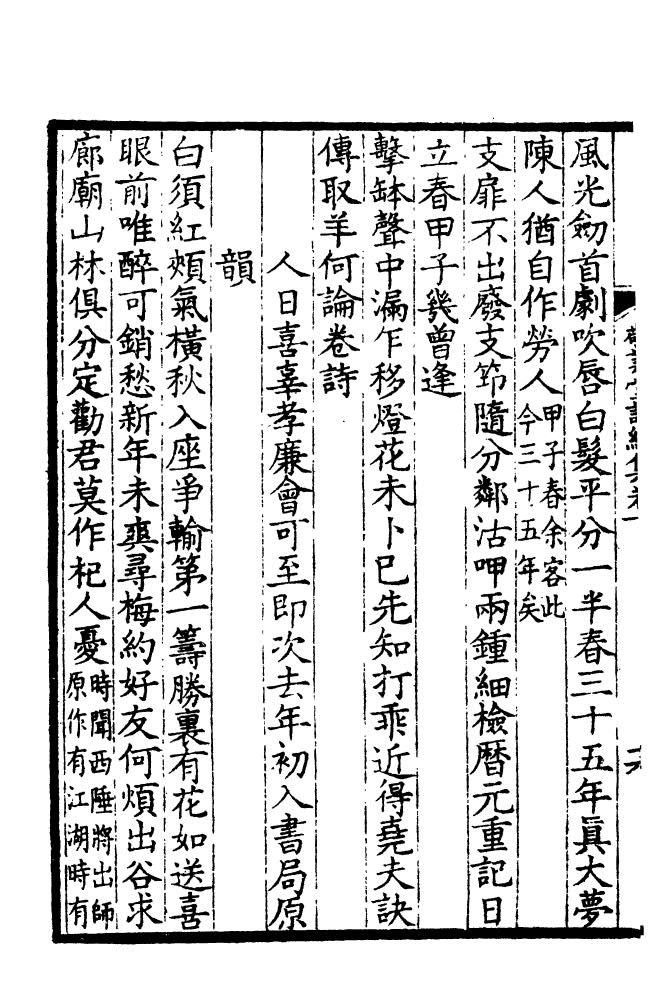 風光劒首劇吹唇白髮平分一半春三十五年眞大夢
陳人猶自作勞人甲子春余客此今三十五年矣
支扉不出廢支笻隨分鄰沽呷兩鍾細檢曆元重記日
立春甲子幾曾逢
擊缽聲中漏乍移燈花未卜已先知打乖近得堯夫訣
傳取羊何論卷詩
人日喜辜孝廉會可至即次去年初入書局原
韻
白須紅頰氣橫秋入座爭輸第一籌勝裏有花如送喜
眼前唯醉可銷愁新年未爽尋梅約好友何煩出谷求
廊廟山林俱分定勸君莫作杞人憂時聞西陲將出師原作有江湖時有